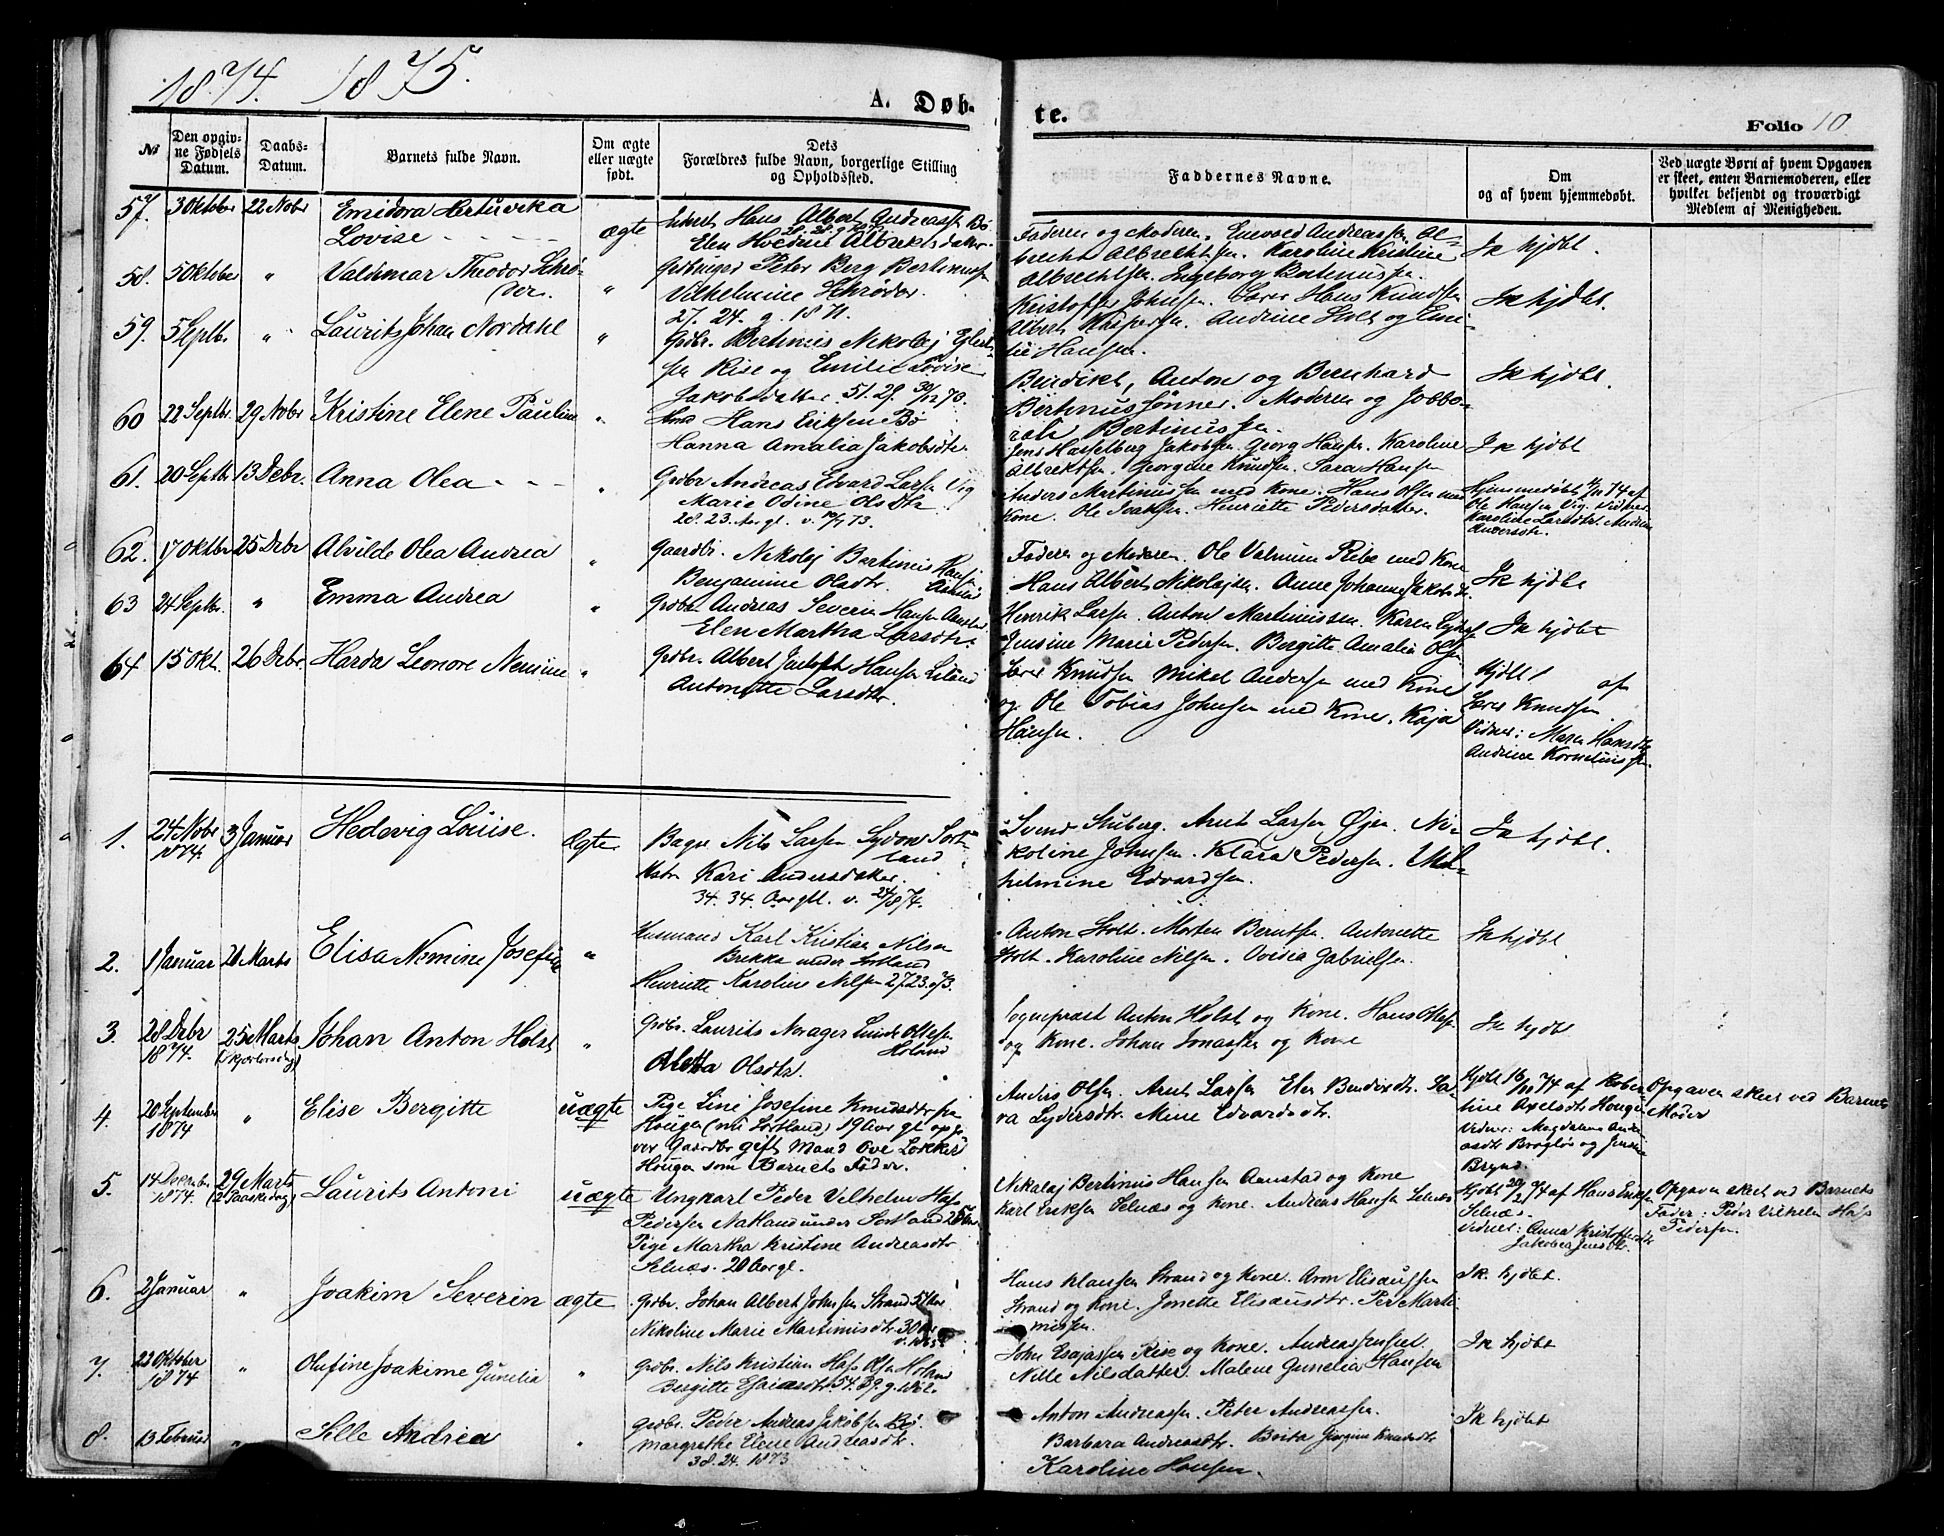 1874. 1875.
A. Døb-
te.
Folio 10
No
Den opgiv-
ne Fødsels
Datum.
Daabs-
Datum.
Barnets fulde Navn.
Om ægte
eller uægte
født.
Dets
Forældres fulde Navn, borgerlige Stilling
og Opholdssted.
Faddernes Navne.
Om
og af hvem hjemmedøbt.
Ved uægte Børn af hvem Opgaven
er skeet, enten Barnemoderen, eller
hvilket bekjendt og troværdigt
Medlem af Menigheden.
57. 3 Oktober 22 Nobr
Lovise
ægte
Hans Albert Andreassen Bø
Elen Albrektsdatter
Faderen og Moderen. Andreassen Al-
brecht Albrechtsen. Karoline Kristine
Albrechtsen. Ingeborg
Ik hjdbt.
58. 5 Oktober "
Valdimar Theodor Schrø-
der
"
Peter Berg
Vilhelmine Schrøder.
27. 24. g. 1871.
Kristoffer Johnsen. Lærer Hans Knudsen
Albert Kaspersen. Andrine Holt og Emi-
lie Hansen.
Ik hjdbt.
59. 5 Septbr. "
Laurits Johan Nordahl
"
Grdbr. Bertinus Nikolaj
sen Rise og Emilie Lovise
Jakobsdatter. 51. 29. 30/12 73.
Bendikt, Anton og Bernhard
Bertinussønner. Moderen og
Bertinussen.
Ik hjdbt.
60 22 Septbr. 29 Nobr
Kristine Elene Pauline
"
Hans Eriksen Bø
Hanna Amalia Jakobsdtr.
Jens Hasselberg Jakobsen. Georg Hansen. Karoline
Albrektsen. Georgine Knudsen. Sara Hansen
Ik hjdbt
61. 20 Septbr 13 Debr.
Anna Olea
"
Grdbr Andreas Edvard Larsen Vig
Marie Odine Olsdtr
28. 23. Aar gl. v. 73.
Anders Martinussen med Kone. Hans Olsen med
Kone. Ole Isaksen. Henriette Pedersdatter.
Hjemmedøbt 74 af
Ole Hansen Vig. Vidner
Karoline Larsdtr. Andrea
Andersdtr.
62. 17 Oktbr 25 Debr
Alvilde Olea Andrea
"
Gaardbr. Nikolaj Bertinus Hansen
Benjamine Olsdtr.
Faderen og Moderen. Ole Valnum Ribe med Kone
Hans Albert Nikolajsen. Anne Johanna Jakobsdtr.
Ik hjdbt
63 24 Septbr. "
Emma Andrea
"
Grdbr Andreas Severin Hansen Aanstad
Elen Martha Larsdtr.
Henrik Larsen. Anton Martinussen. Karen
Jensine Marie Pedersen. Bergitte Amalia Olsen
Ik hjdbt
64 15 Okt. 26 Debr
Harda Leonore Nemine
"
Grdbr. Albert Hansen Liland
Antonette Larsdtr.
Lærer Knudsen Mikal Andersen med Kone
og Ole Tobias Johnsen med Kone. Kaja
Hansen.
Hjdbt af
Lærer Knudsen.
Vidner: Maren Hansdtr.
Andrine Korneliussen.
1. 24 Nobr 1874. 3 Januar
Hedevig Louise.
Ægte
Bager Nils Larsen Sort-
land
Kari Andersdatter.
34. 34. Aar gl. v. 24/8 74.
Svend Stuberg. Arnt Larsen Øjen. Ni-
koline Johnsen. Klara Pedersen. Vil-
helmine Edvardsen.
Ik hjdbt.
2. 1 Januar 20 Marts
Elisa Nemine Josefine
"
Husmand Karl Kristian Nilsen
Brekka under Sortland
Henriette Karoline Nilsen 27. 23. 73.
Anton Holt. Morten Berntsen. Antonette
Holt. Karoline Nilsen. Ovidia Gabrielsen.
Ik hjdbt
3. 28 Debr 1874. 25 Marts
Johan Anton Holst
"
Grdbr. Laurits Norager Lund Ottesen
Holand
Aletta Olsdtr.
Sogneprest Anton Holst og Kone. Hans Ottesen
og Kone. Johan Jonassen og Kone
Ik hjdbt
4. 20 September 1874 "
Elise Bergitte
uægte
Pige Line Josefine Knudsdtr fra
Hougen (nu Sortland) 19 Aar gl opgi-
ver Gaardbr gift Mand Ove Lokkes
Hougen som Barnets Fader.
Anders Olsen. Arnt Larsen. Elen Bendixdtr. Sa-
ra Lydersdtr. Mine Edvardsdtr.
Hjdbt 16/10 74 af
Axelsdtr Hougen
Vidner: Magdalena
Brygløs og
Opgaven skeet ved Barnets
Moder
5. 14 December 1874. 29 Marts
(2 Paaskedag)
Laurits Antoni
uægte
Ungkarl Peder Vilhelm Hass
Pedersen Natland under Sortland 25 Aar
Pige Martha Kristine Andreasdtr
Selnæs. 20 Aar gl.
Nikolaj Bertinus Hansen Aanstad og Kone
Karl Eriksen Selnæs og Kone. Andreas Hansen Selnæs
Hjdbt 74 af Hans Eriksen
Selnæs.
Vidner: Anna Kristoffersdtr
Jakobea Jensdtr.
Opgaven skeet ved Barnets
Fader: Peder Vilhelm Hass
Pedersen.
6. 2 Januar "
Joakim Severin
ægte
Grdbr. Johan Albert Johnsen Strand
Nikoline Marie Martinusdtr. 30 Aar
Hans Klausen Strand og Kone. Aron Elisæussen
Strand og Kone. Jonette Elisæusdtr. Per Marti-
nussen.
Ik. hjdbt.
7. 22 Oktober 1874 "
Olufine Joakime Gunelia
"
Grdbr. Nils Kristian Hass Olsen Holand
Bergitte Esaiasdtr. 54. 39. g.
John Esajassen Rise og Kone. Andreas
Nille Nilsdatter. Malene Gunelia Hansen
Ik hjdbt
8. 13 Februar "
Sille Andrea
"
Grdbr. Peder Andreas Jakobsen Bø.
Margrethe Elene Andreasdtr.
38. 24. 1873
Anton Andreassen. Peter Andreassen.
Barbara Andreasdtr. Berta Jørgine Knudsdtr
Karoline Hansen.
Ik hjdbt